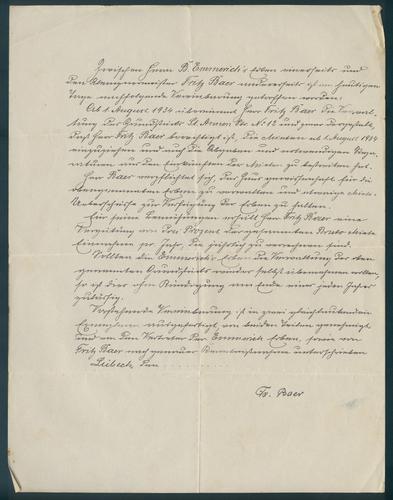 Zwischen Herrn B. Emmerich's Erben einerseits und
dem Klempnermeister Fritz Baer andererseits ist am heutigen
Tage nachfolgende Vereinbarung getroffen worden:
Ab 1. August 1934 übernimmt Herr Fritz Baer die Verwal-
tung des Grundstücks St. Annen Str. Nr. 12 und zwar dergestalt,
daß Herr Fritz Baer berechtigt ist, die Mieten ab 1. August 1934
einzuziehen und auch die Abgaben und notwendigen Repa-
raturen aus den Einkünften der Mieten zu bestreiten hat.
Herr Baer verpflichtet sich, das Haus gewissenhaft für die
obengenannten Erben zu verwalten und etwaige Miets-
Ueberschüsse zur Verfügung der Erben zu halten.
Für seine Bemühungen erhält Herr Fritz Baer eine
Vergütung von Prozent der gesammten Brutto Miets
Einnahme per Jahr, die zu verrechnen sind.
Sollten die Emmerich's Erben die Verwaltung des oben
genannten Grundstücks wieder selbst übernehmen wollen,
so ist dies ohne Kündigung am Ende eines jeden Jahres
zulässig.
Vorstehende Vereinbarung ist in zwei gleichlautenden
Exemplaren ausgefertigt, von beiden Seiten genehmigt
und von dem Vertreter der Emmerich Erben, sowie von
Fritz Baer nach genauer Kenntnisnahme unterschrieben
Lübeck, den
Fr. Baer